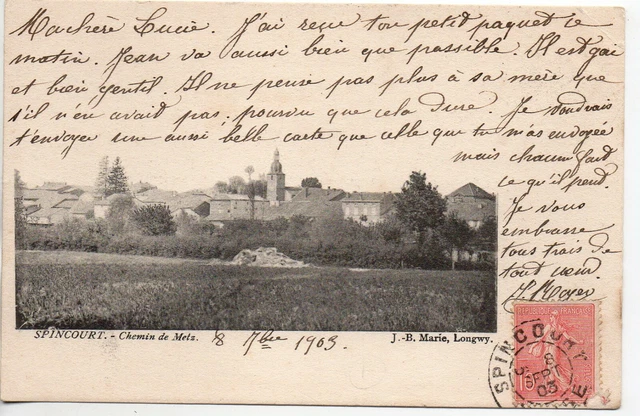 Ma chère Lucie. J'ai reçu ton petit paquet ce
matin. Jean va aussi bien que possible. Il est gai
et bien gentil. Il ne pense pas plus à sa mère que
s'il n'en avait pas; pourvu que cela dure. Je voudrais
t'envoyer une aussi belle carte que celle que tu m'as envoyée
mais chacun fait
ce qu'il peut.
Je vous
embrasse
tous trois de
tout cœur.
SPINCOURT. - Chemin de Metz.
8 7bre 1903.
J.-B. Marie, Longwy.
REPUBLIQUE FRANÇAISE
SPINCOURT
8
SEPT
03
MEUSE